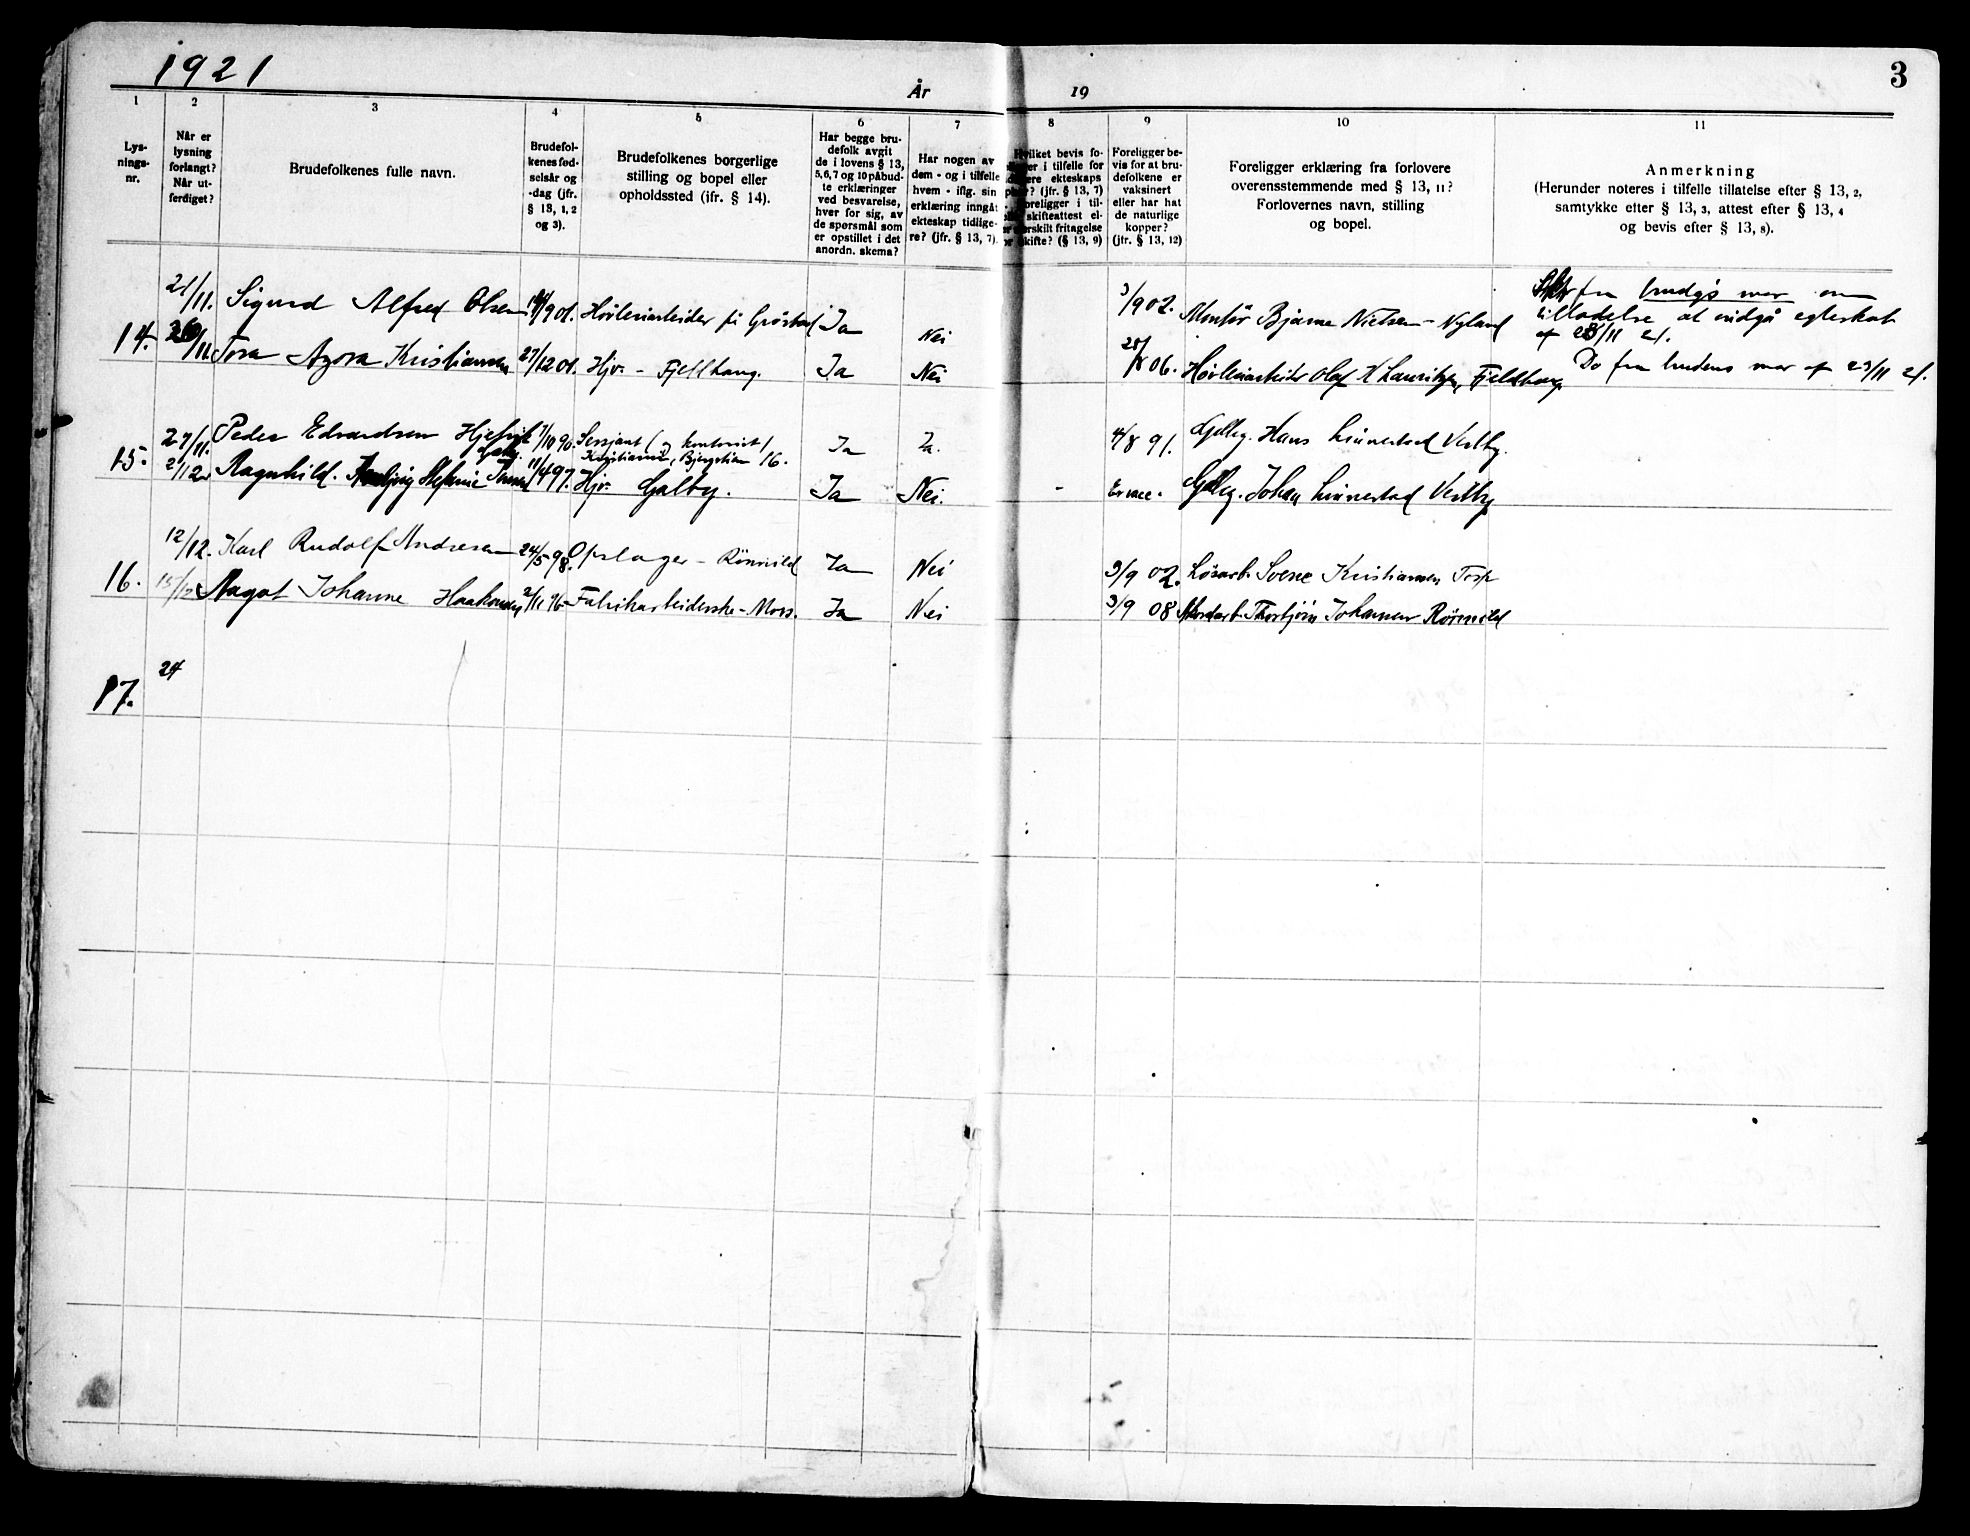 1921
År
19
3
1 2 3 4 5 6 7 8 9 10 11
Lys-
nings-
nr.
Når er
lysning
forlangt?
Når ut-
ferdiget?
Brudefolkenes fulle navn.
Brudefol-
kenes fød-
selsår og
-dag (jfr.
§ 13, 1, 2
og 3).
Brudefolkenes borgerlige
stilling og bopel eller
opholdssted (ifr. § 14).
Har begge bru-
defolk avgit
de i lovens § 13,
5, 6, 7 og 10 påbud-
te erklæringer
ved besvarelse,
hver for sig, av
de spørsmål som
er opstillet i det
anordn. skema?
Har nogen av
dem - og i tilfelle
hvem - iflg. sin
erklæring inngåt
ekteskap tidlige-
re? (jfr. § 13, 7).
Hvilket bevis fo-
i tilfelle for
ekteskaps
(jfr. § 13, 7)
i til-
skifteattest el-
fritagelse
skifte? (§ 13, 9)
Foreligger be-
vis for at bru-
defolkene er
vaksinert
eller har hat
de naturlige
kopper?
(jfr. § 13, 12)
Foreligger erklæring fra forlovere
overensstemmende med § 13, 11?
Forlovernes navn, stilling
og bopel.
Anmerkning
(Herunder noteres i tilfelle tillatelse efter § 13, 2,
samtykke efter § 13, 3, attest efter § 13, 4
og bevis efter § 13, 8).
14. 21/11. Sigurd Alfred Olsen Høvleriarbeider Ja Nei 3/9 02. Montør Bjarne Nielsen - Nyland
fra brudg's mor om
tilladelse at indgå egteskab
/11 21.
/11. Tora Azora Kristiansen 27/12 01. Hjv. - Fjellhaug. Ja Nei 06. Høvleriarbeider Olaf Lauritzen, Fjeldhaug
Do fra brudens mor af 23/11 21.
15. 27/11. Peder Edvardsen 7/10 90. Sersjant ( kontorist )
Kristiania, 16. Ja Ja. 4/8 91. Hans Linnestad Vestby.
2/12 Ragnhild. Stefanie 11/4 97. Hjv. Galby. Ja Nei. - Er vacc. Johan Linnestad Vestby
16. 12/12. Karl Rudolf Andresen 24/5 98. Opslager - Rønnild Ja Nei 3/9 02. Løsarb. Kristiansen Torp
15/12 Magot Johanne Haakonsen 2/11 96 Fabrikarbeiderske - Moss. Ja Nei 3/9 08 Thorbjørn Johansen Rønnild
17. 24